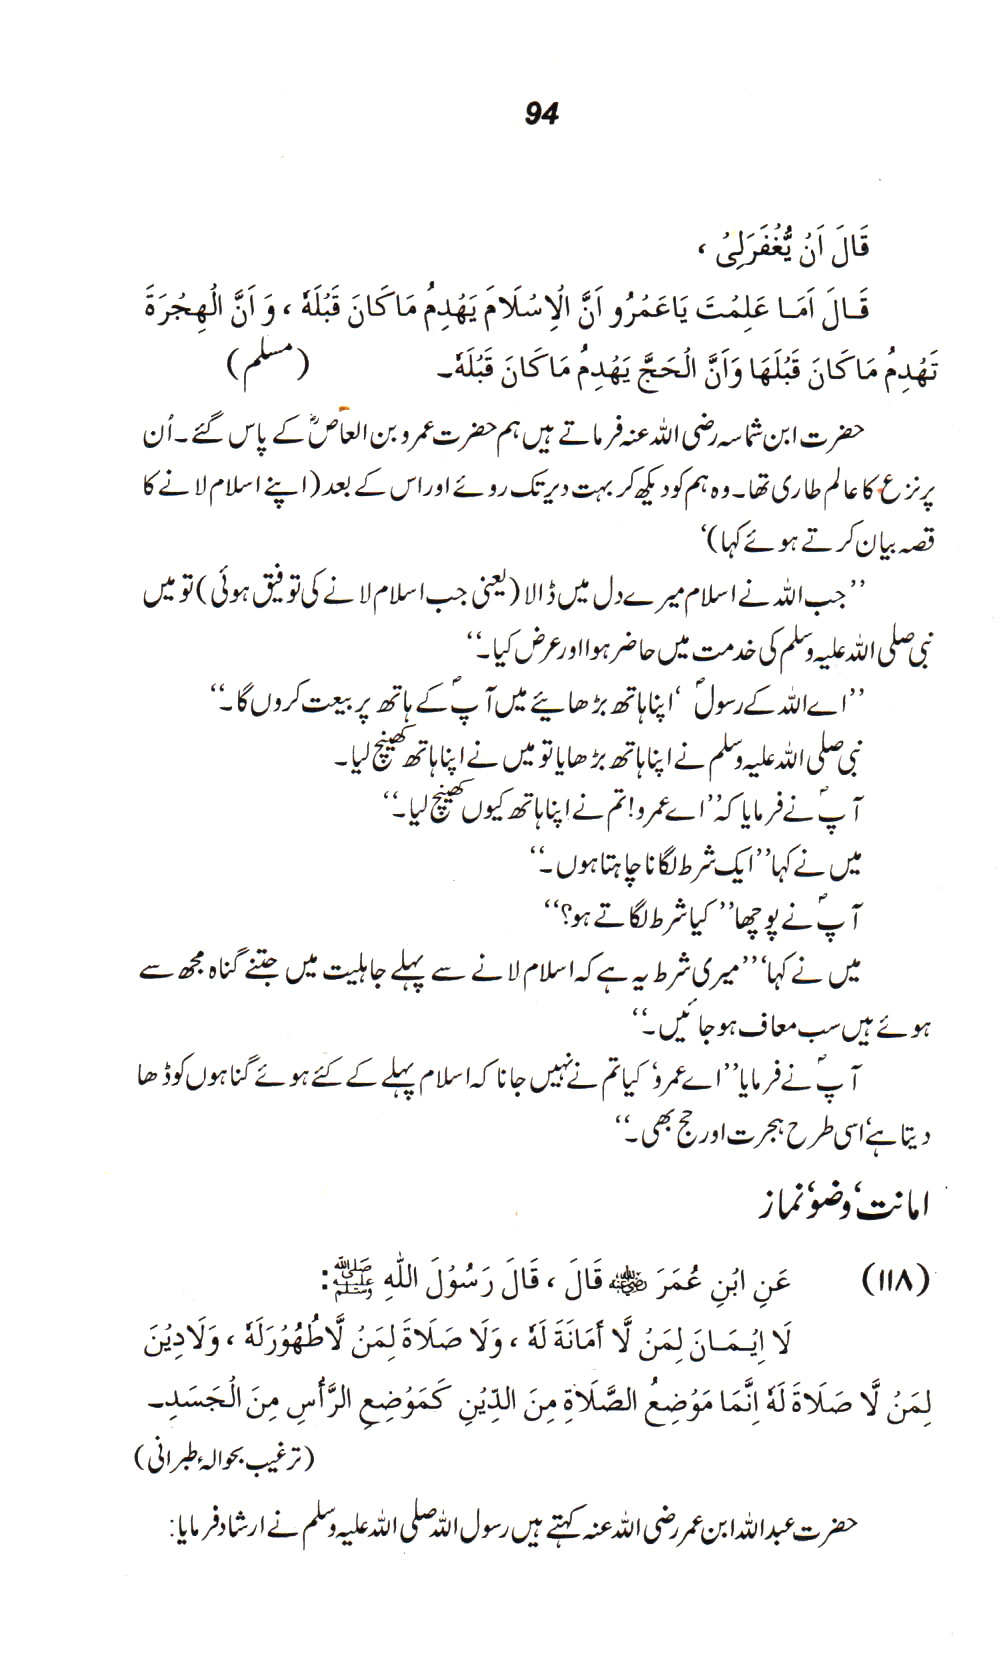 94
قَالَ اَنْ يُّغْفَرَلِىْ ،
قَالَ اَمَا عَلِمْتَ يَاعَمْرُو اَنَّ الْاِسْلَامَ يَهْدِمُ مَاكَانَ قَبْلَهٗ ، وَ اَنَّ الْهِجْرَةَ
تَهْدِمُ مَاكَانَ قَبْلَهَا وَاَنَّ الْحَجَّ يَهْدِمُ مَاكَانَ قَبْلَهٗ۔ (مسلم)
حضرت ابن شماسہ رضی اللہ عنہ فرماتے ہیں ہم حضرت عمرو بن العاصؓ کے پاس گئے۔ اُن
پر نزع کا عالم طاری تھا۔ وہ ہم کو دیکھ کر بہت دیر تک روئے اور اس کے بعد (اپنے اسلام لانے کا
قصہ بیان کرتے ہوئے کہا)‘
’’جب اللہ نے اسلام میرے دل میں ڈالا (یعنی جب اسلام لانے کی توفیق ہوئی) تو میں
نبی صلی اللہ علیہ وسلم کی خدمت میں حاضر ہوا اور عرض کیا۔‘‘
’’اے اللہ کے رسولؐ ‘ اپنا ہاتھ بڑھایئے میں آپؐ کے ہاتھ پر بیعت کروں گا۔‘‘
نبی صلی اللہ علیہ وسلم نے اپنا ہاتھ بڑھایا تو میں نے اپنا ہاتھ کھینچ لیا۔
آپؐ نے فرمایا کہ’’اے عمرو! تم نے اپنا ہاتھ کیوں کھینچ لیا۔‘‘
میں نے کہا’’ایک شرط لگانا چاہتا ہوں۔‘‘
آپؐ نے پوچھا’’کیا شرط لگاتے ہو؟‘‘
میں نے کہا‘’’میری شرط یہ ہے کہ اسلام لانے سے پہلے جاہلیت میں جتنے گناہ مجھ سے
ہوئے ہیں سب معاف ہو جائیں۔‘‘
آپؐ نے فرمایا’’اے عمرو‘ کیا تم نے نہیں جانا کہ اسلام پہلے کے کئے ہوئے گناہوں کو ڈھا
دیتا ہے‘ اسی طرح ہجرت اور حج بھی۔‘‘
امانت‘ وضو‘ نماز
(۱۱۸) عَنِ ابْنِ عُمَرَ رضی اللہ عنہ قَالَ ، قَالَ رَسُوْلَ اللّٰهِ ﷺ:
لَا اِيْمَانَ لِمَنْ لَّا أَمَانَةَ لَهٗ ، وَلَا صَلَاةَ لِمَنْ لَّاطُهُوْرَلَهٗ ، وَلَادِيْنَ
لِمَنْ لَّا صَلَاةَ لَهٗ اِنَّمَا مَوْضِعُ الصَّلَاةِ مِنَ الدِّيْنِ كَمَوْضِعِ الرَّأْسِ مِنَ الْجَسَدِ۔
(ترغیب بحوالہٴ طبرانی)
حضرت عبداللہ ابن عمر رضی اللہ عنہ کہتے ہیں رسول اللہ صلی اللہ علیہ وسلم نے ارشاد فرمایا: